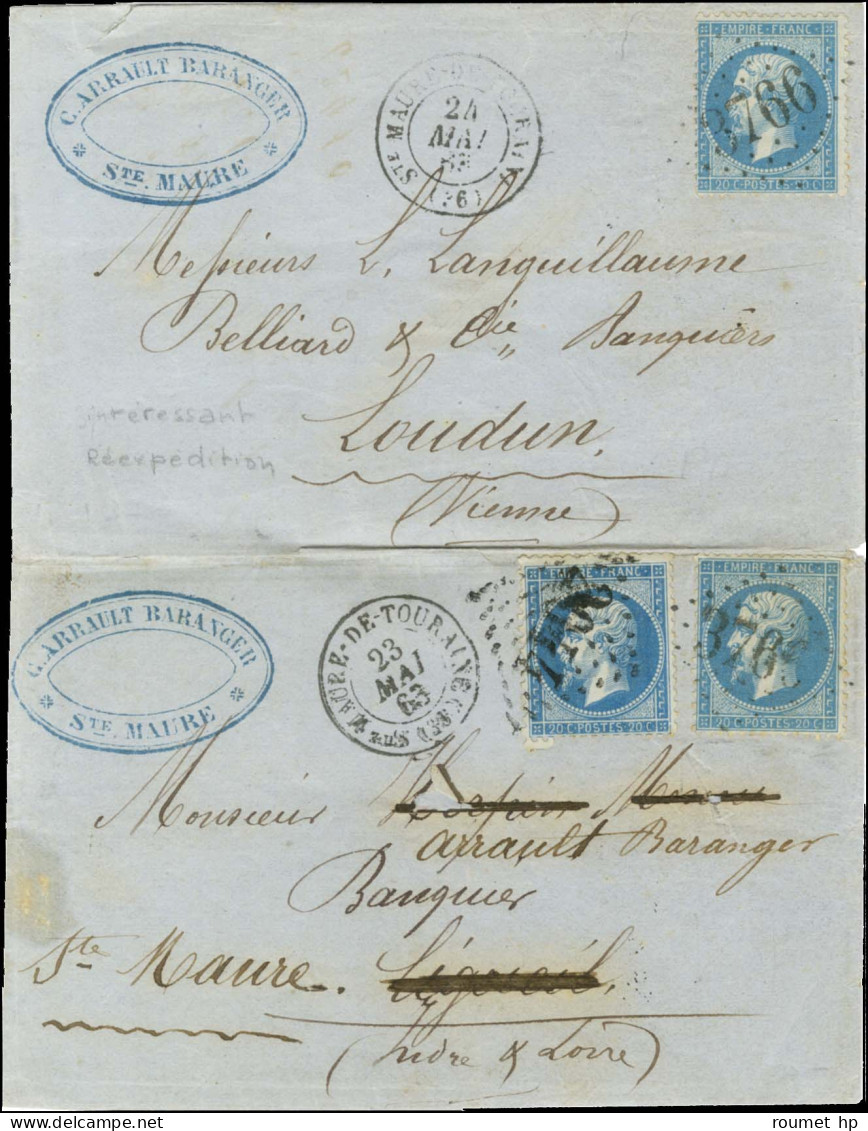 C. ARRAULT BARANGER
STE. MAURE
STE MAURE-DE-TOURAINE
24
MAI
63
(36)
EMPIRE FRANC
3766
20 C-POSTES-20 C
Messieurs L. Languillaume
Belliard & Cie Banquiers
Loudun,
(Vienne)
intéressant
Réexpédition
C. ARRAULT BARANGER
STE. MAURE
STE MAURE-DE-TOURAINE (36)
23
MAI
63
EMPIRE FRANC
20 C-POSTES-20 C
EMPIRE FRANC
3766
20 C-POSTES-20 C
Monsieur
Arrault Baranger
Banquier
Ste Maure. Ligueil,
(Indre & Loire)
roumet hp